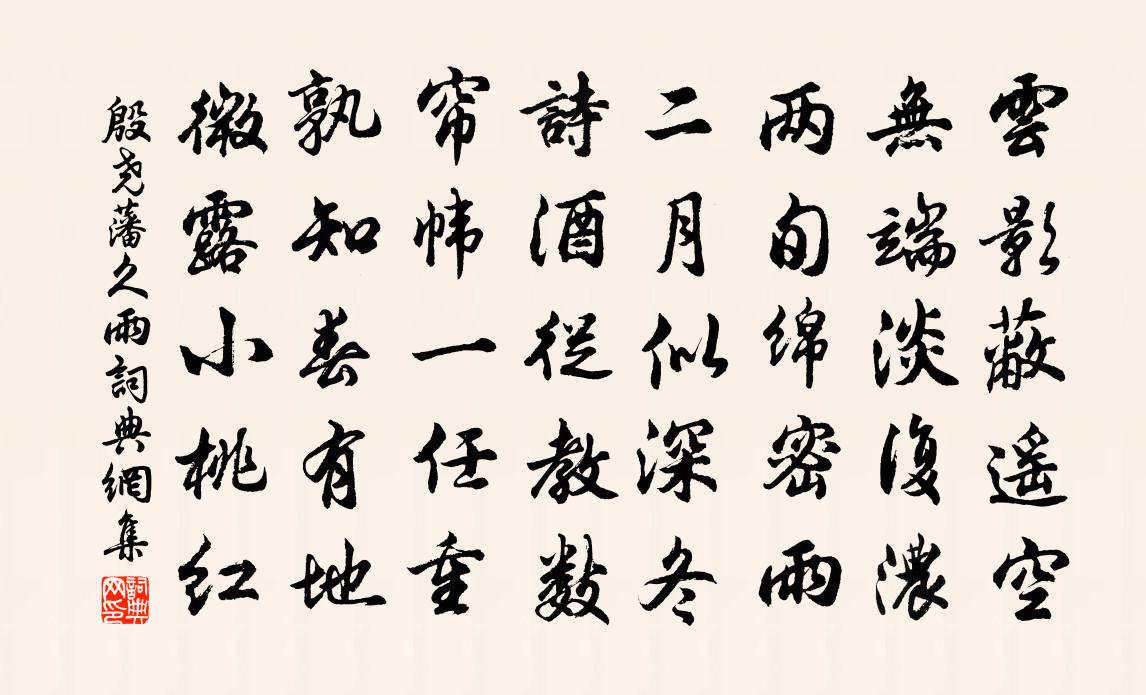 雲影蔽遥空
無端淡復濃
两旬绵密雨
二月似深冬
詩酒從教数
帘帏一任重
孰知春有地
微露小桃红
殷尧藩久雨詞典網集
詞典网印